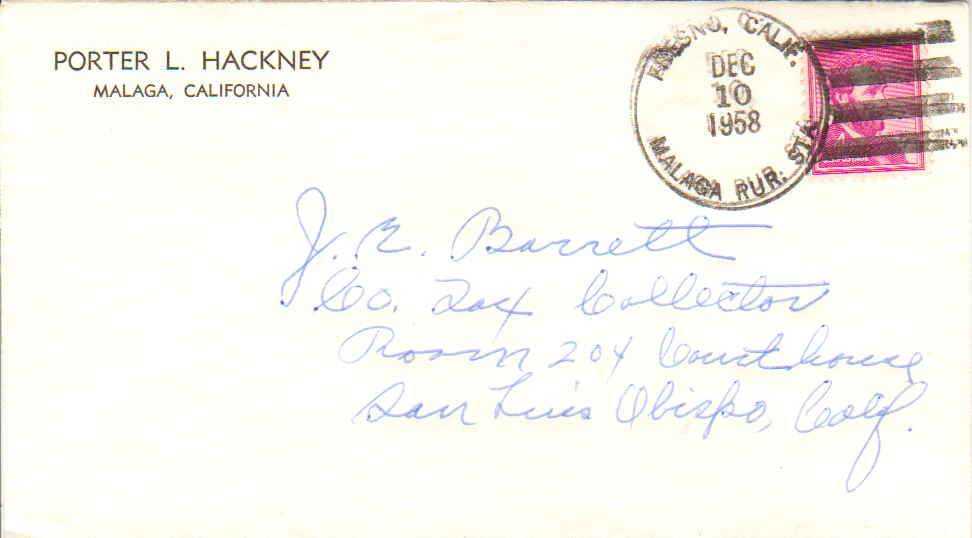 PORTER L. HACKNEY
MALAGA, CALIFORNIA
FRESNO, CALIF.
DEC
10
1958
MALAGA RUR. STA.
J. E. Barrett
Co. Tax Collector
Room 204 Courthouse
San Luis Obispo, Calif.